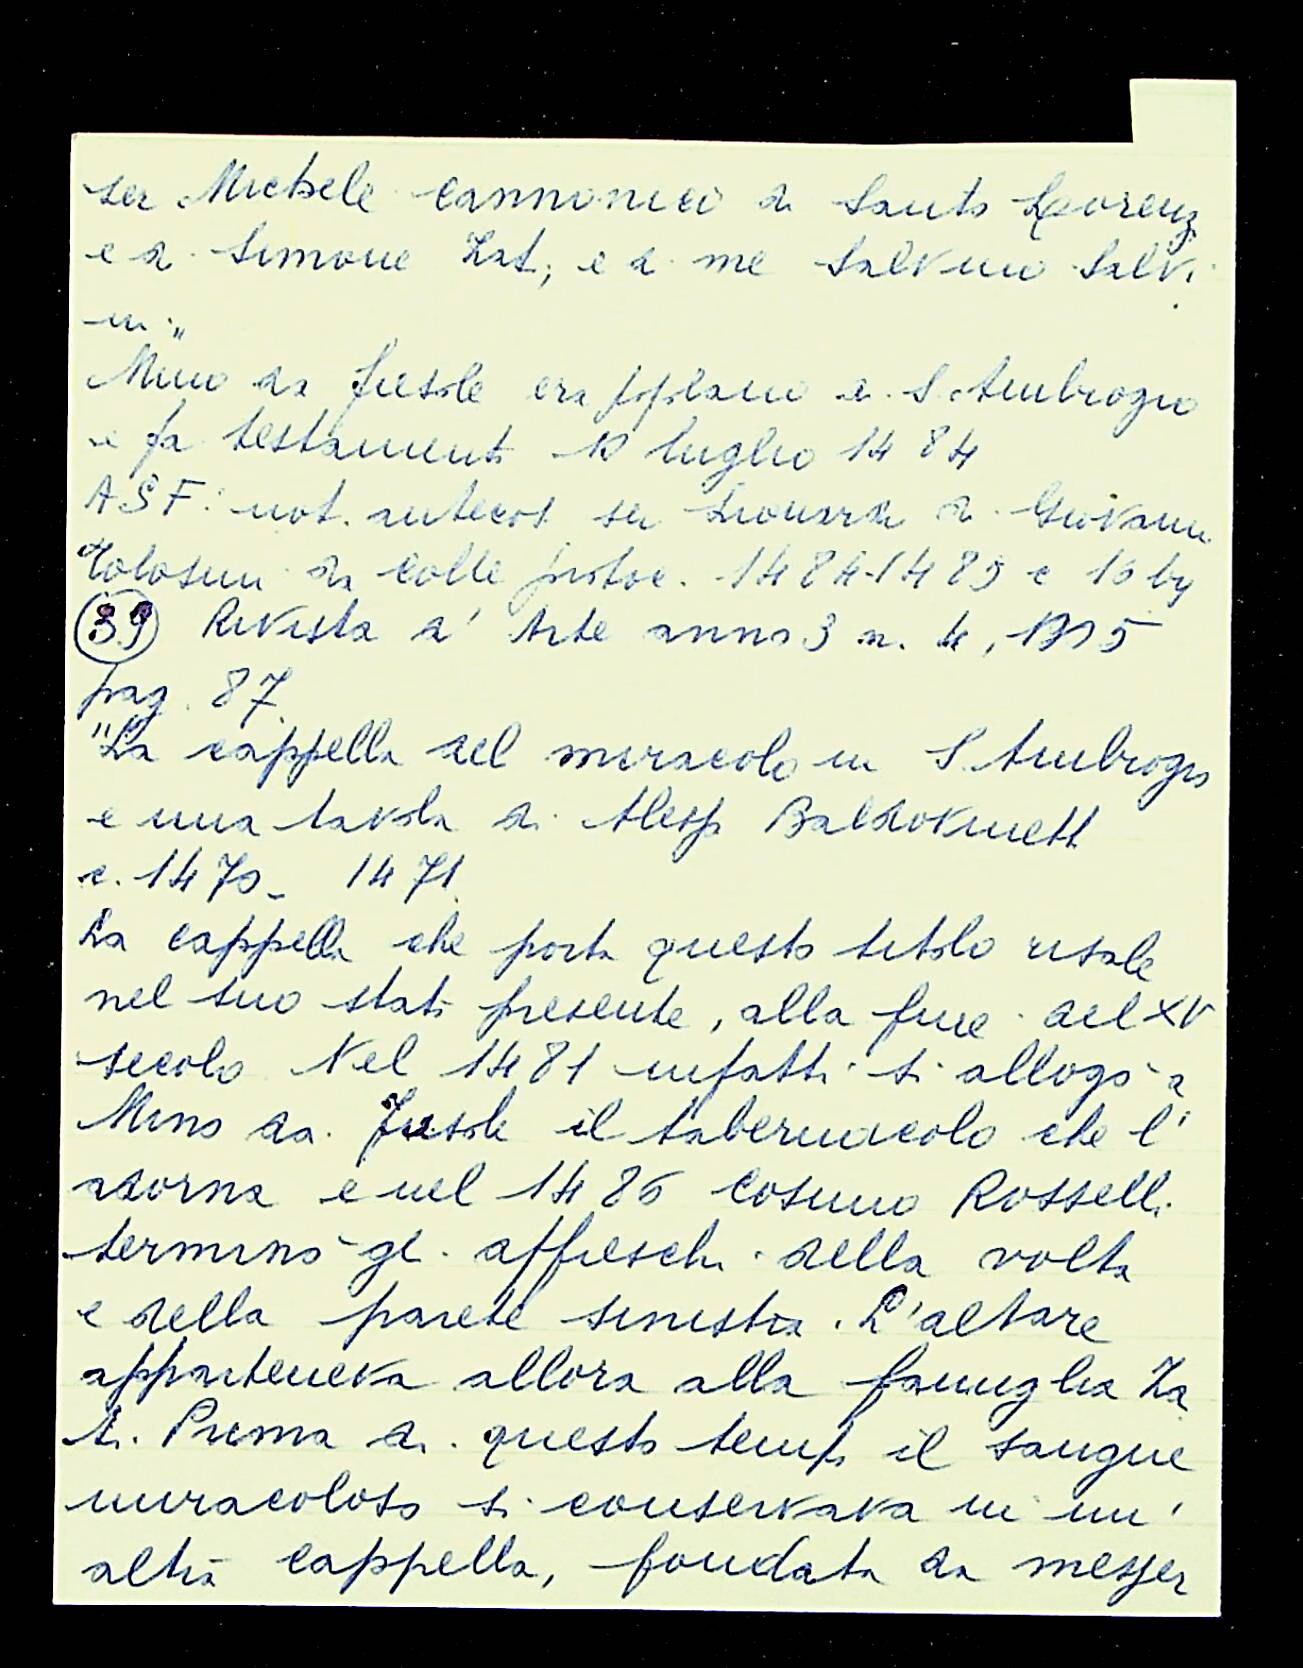 ser Michele cannonici di Santo Lorenz
e di Simone Zati, e di me Salvino Salvi
ni"
Mino da Fiesole era popolano di S. Ambrogio
e fa testamento 10 luglio 1484
ASF: not. antecos. ser Lionardo di Giovanni
Tolosini da Colle protoc. 1484-1485 c
39 Rivista d'Arte anno 3 n. 4, 1905
pag. 87
"La cappella del miracolo in S. Ambrogio
e una tavola di Aless Baldovinetti
c. 1470- 1471.
La cappella che porta questo titolo risale
nel suo stato presente, alla fine del XV
secolo Nel 1481 infatti si allogò a
Mino da Fiesole il tabernacolo che l'
adorna e nel 1486 Cosimo Rosselli
terminò gli affreschi della volta
e della parete sinistra. L'altare
apparteneva allora alla famiglia Za
ti. Prima di questo tempo il sangue
miracoloso si conservava in un'
altra cappella, fondata da messer